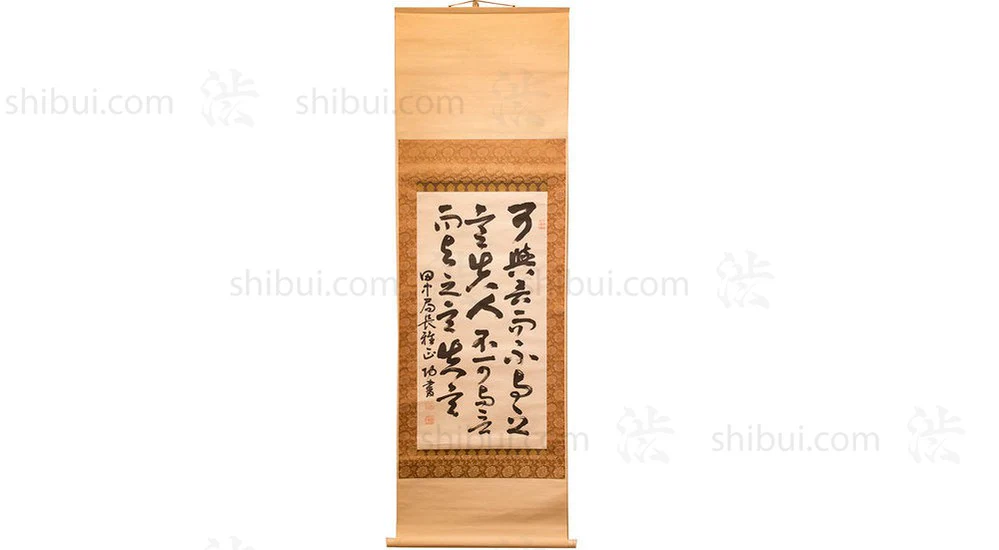 可與言而不与之
言失人不可与言
而与之言失言
田中局長雅正 書
shibui.com 渋 shibui.com 渋
shibui.com 渋 shibui.com 渋
shibui.com 渋 shibui.com